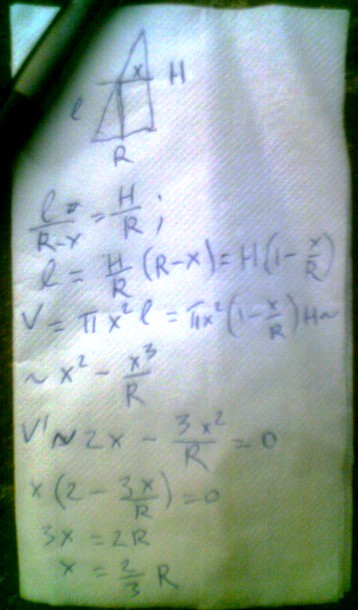 x H
l
R
l/(R-x) = H/R ;
l = H/R (R-x) = H(1 - x/R)
V = πx² l = πx²(1 - x/R) H ~
~ x² - x³/R
V' ~ 2x - 3x²/R = 0
x(2 - 3x/R) = 0
3x = 2R
x = 2/3 R